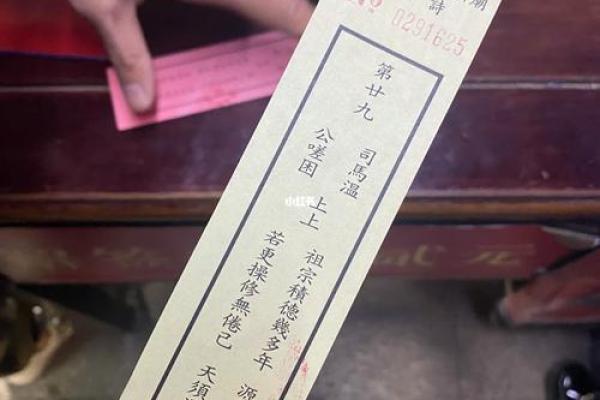 廟
詩
0291625
第廿九
司馬溫
公嗟困
上上
祖宗積德幾多年 源
若更操修無倦已 天須
小红书